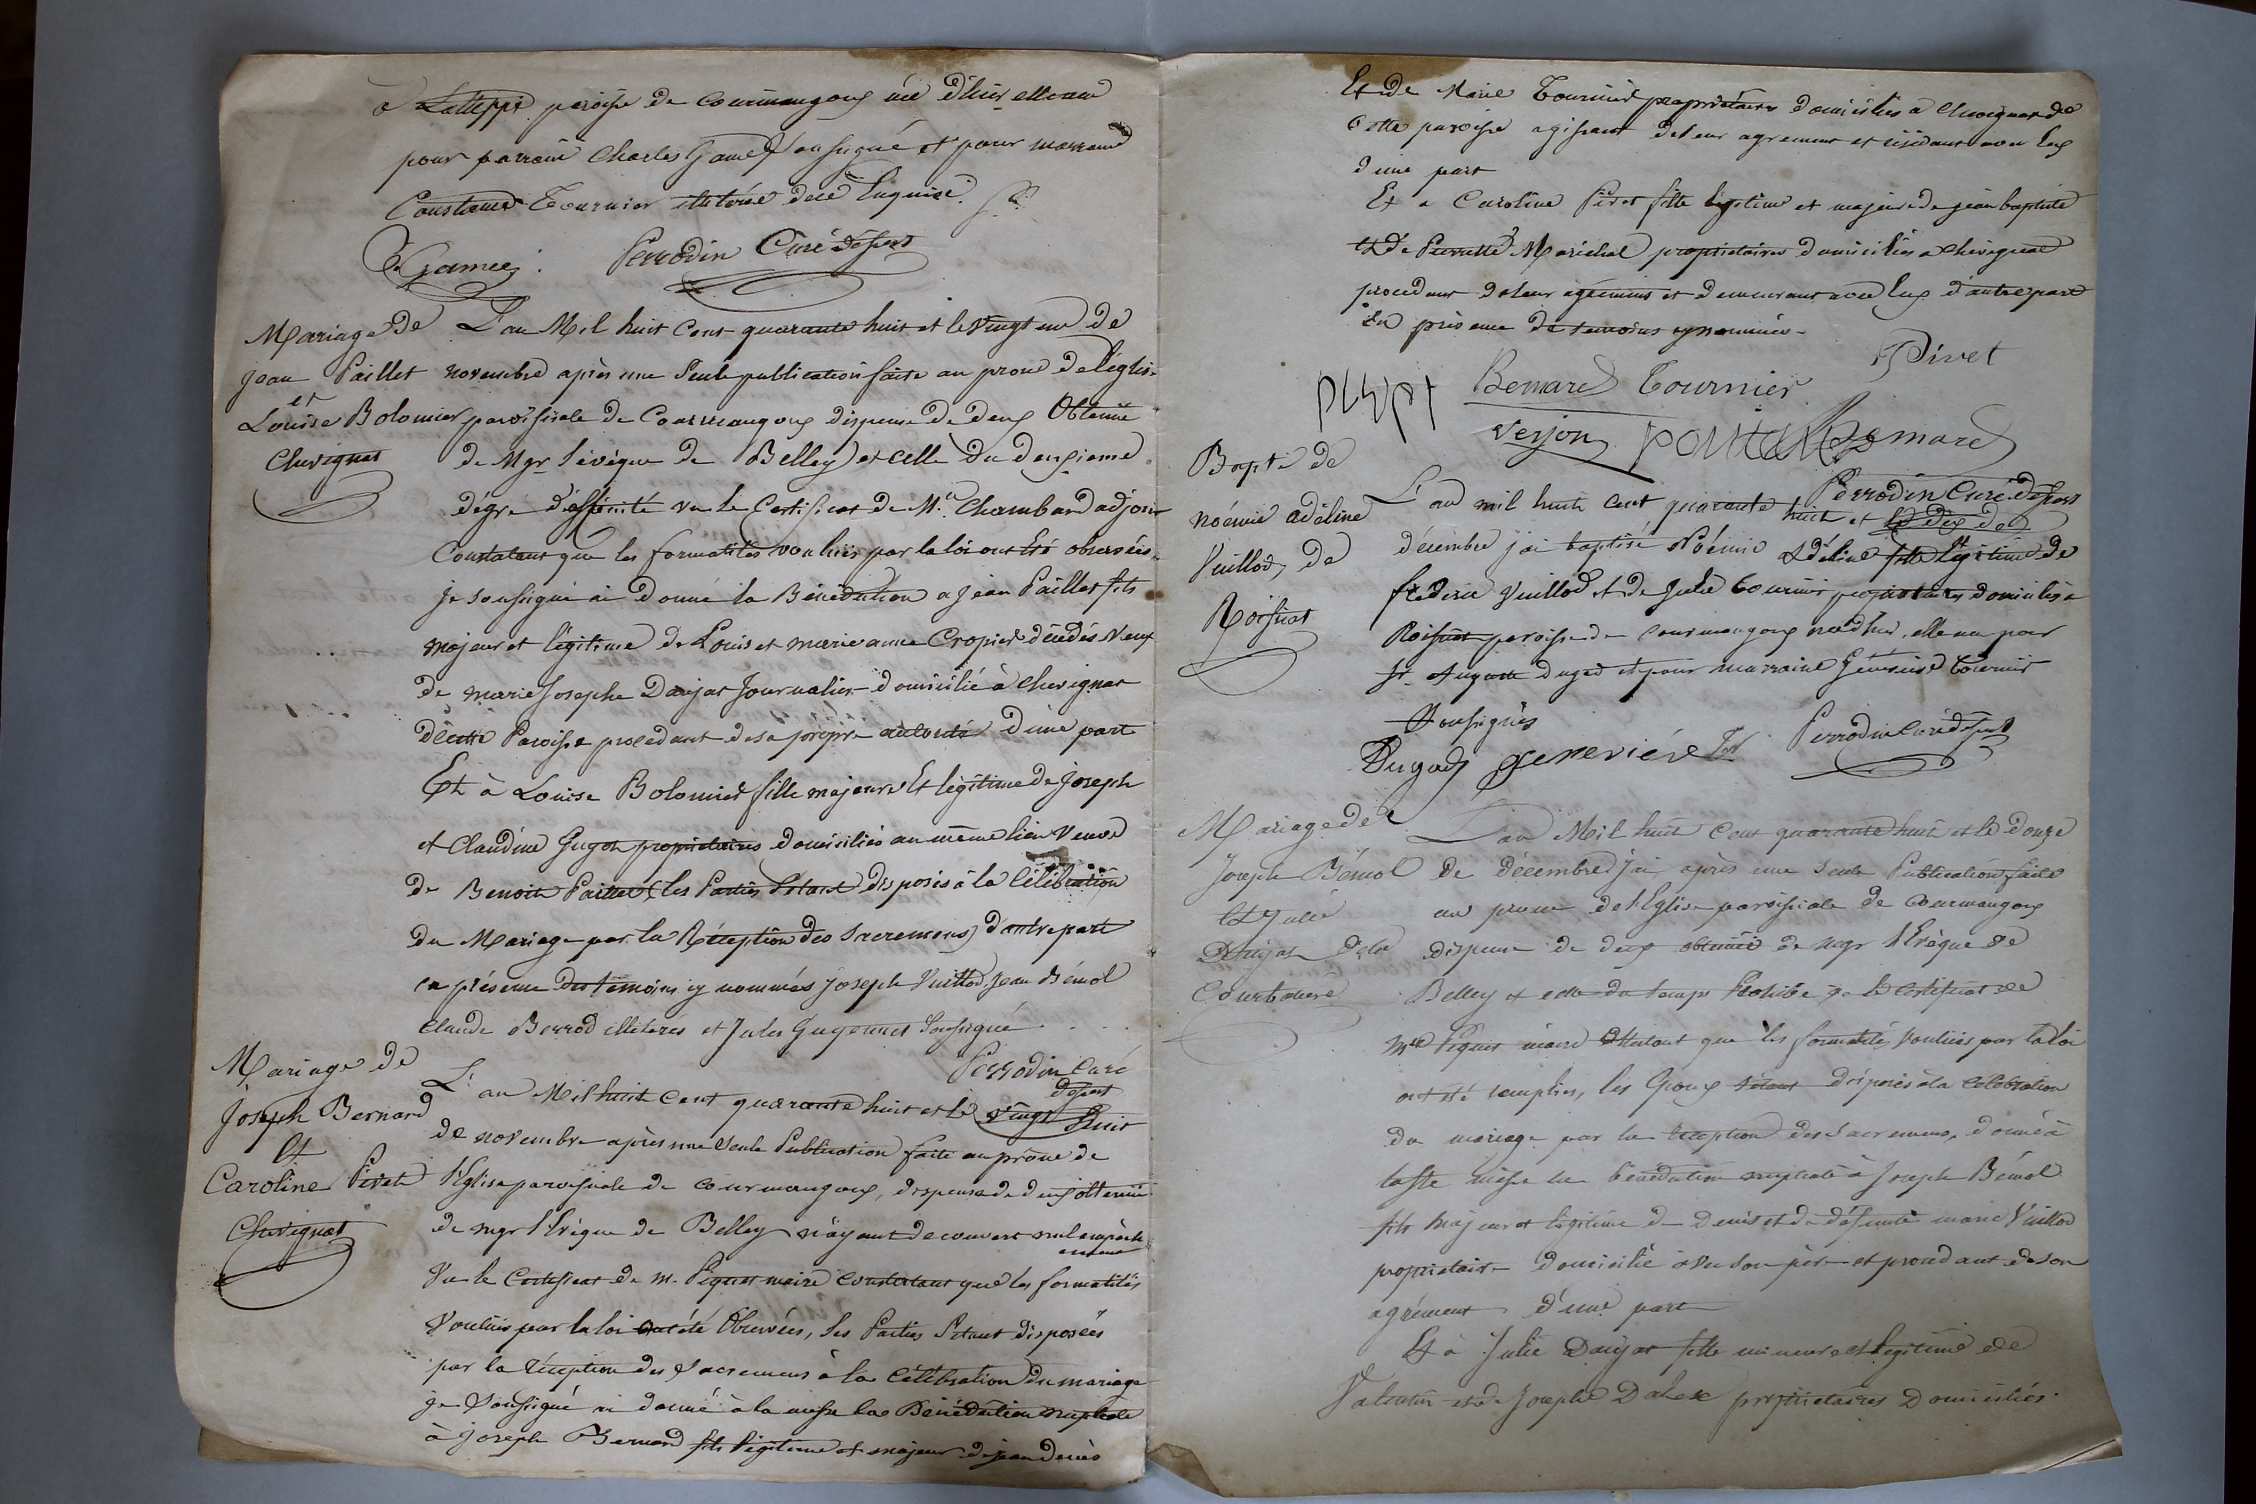 à paroisse de Courmangoux née d'hier elle a eu
pour parrain Charles Gamet soussigné et pour marraine
Constance Tournier illitérée de ce
Gamet Perrodin Curé dessert
Mariage de
Jean Paillet
et
Louise Bolomier
Chevignat
L'an Mil huit cent quarante huit et le vingt un de
novembre après une seule publication faite au prone de l'église
paroissiale de Courmangoux dispense de deux obtenue
de Mgr l'évèque de Belley et celle du deuxième
dégré d'affinité vu le Certificat de Mr. Chambard adjoint
Constatant que les formalités voulues par la loi ont été observées
je soussigné ai donné la Bénédiction a jean Paillet fils
majeur et légitime de Louis et marie anne Cropier décédés Veuf
de marie Josephe Daujat Journalier domicilié à Chevignat
de cette Paroisse procédant de sa propre autorité d'une part
Et à Louise Bolomier fille majeure et légitime de Joseph
et Claudine Guyon propriétaires domiciliés au même lieu Veuve
de Benoit Paillet (les Parties s'étant disposés à la Célébration
du Mariage par la Réception des Sacremens) d'autre part
en présence des témoins cy nommés joseph Vuillod, Jean Bémol
Claude Berrod illiterés et Jules Guyennet Soussigné
Perrodin Curé
dessert
Mariage de
Joseph Bernard
et
Caroline Pivet
Chevignat
L'an Mil huit cent quarante huit et le vingt huit
de novembre après une seule Publication faite au prône de
l'Eglise paroissiale de Courmangoux, dispense de deux obtenue
de mgr l'Evèque de Belley n'ayant découvert nul empêche
ment
Vu le Certificat de M. Piquet maire constatant que les formalités
Voulues par la loi ont été Observées, les Parties s'étant disposées
par la réception des Sacremens à la Célébration du mariage
je Soussigné ai donné à la messe la Bénédiction nuptiale
à joseph Bernard fils légitime et majeur de jean denis
Et de Marie Tournier propriétaires domiciliés à Chevignat de
Cette paroisse agissant de leur agrement et résidant avec eux
d'une part
Et a Caroline Pivet fille légitime et majeure de jean baptiste
et de Pierrette Maréchal propriétaires domiciliés a chevignat
procédant de leur agrément et demeurant avec eux d'autre part
En présence de temoins cy nommés
Pivet
Bernard Tournier
Verjon Bernard
Perrodin Curé dessert
Bapte de
noémie adéline
Vuillod, de
Roissiat
L'an mil huit cent quarante huit et le dix de
décembre j'ai baptisé Noémie Adéline fille légitime de
frédéric Vuillod et de Julie tournier propriétaires domiciliés à
Roissiat paroisse de Courmangoux née d'hier, elle a eu pour
pr. Auguste dugad et pour marraine Géneviève Tournier
Soussignés
Dugad genevieve Perrodin Curé dessert
Mariage de
Joseph Bémol
Et Julie
Daujat de la
Courbatière
L'an Mil huit Cent quarante huit et le douze
de décembre j'ai après une seule Publication faite
au prone de l'Eglise paroissiale de Courmangoux
dispense de deux obtenue de mgr l'Evèque de
Belley et celle du temps Prohibé vu le certificat de
Mr Piquet maire attestant que les formalités voulues par la loi
ont été remplies, les Epoux s'étant disposés à la célébration
du mariage par la réception des Sacremens, donné à
la Ste messe la bénédiction nuptiale à Joseph Bémol
fils Majeur et légitime de Denis et de défunte marie Vuillod
propriétaire domicilié avec son père et procédant de son
agrément d'une part
Et à Julie Daujat fille mineure et légitime de
Valentin et de Josephe Dalex propriétaires Domiciliés